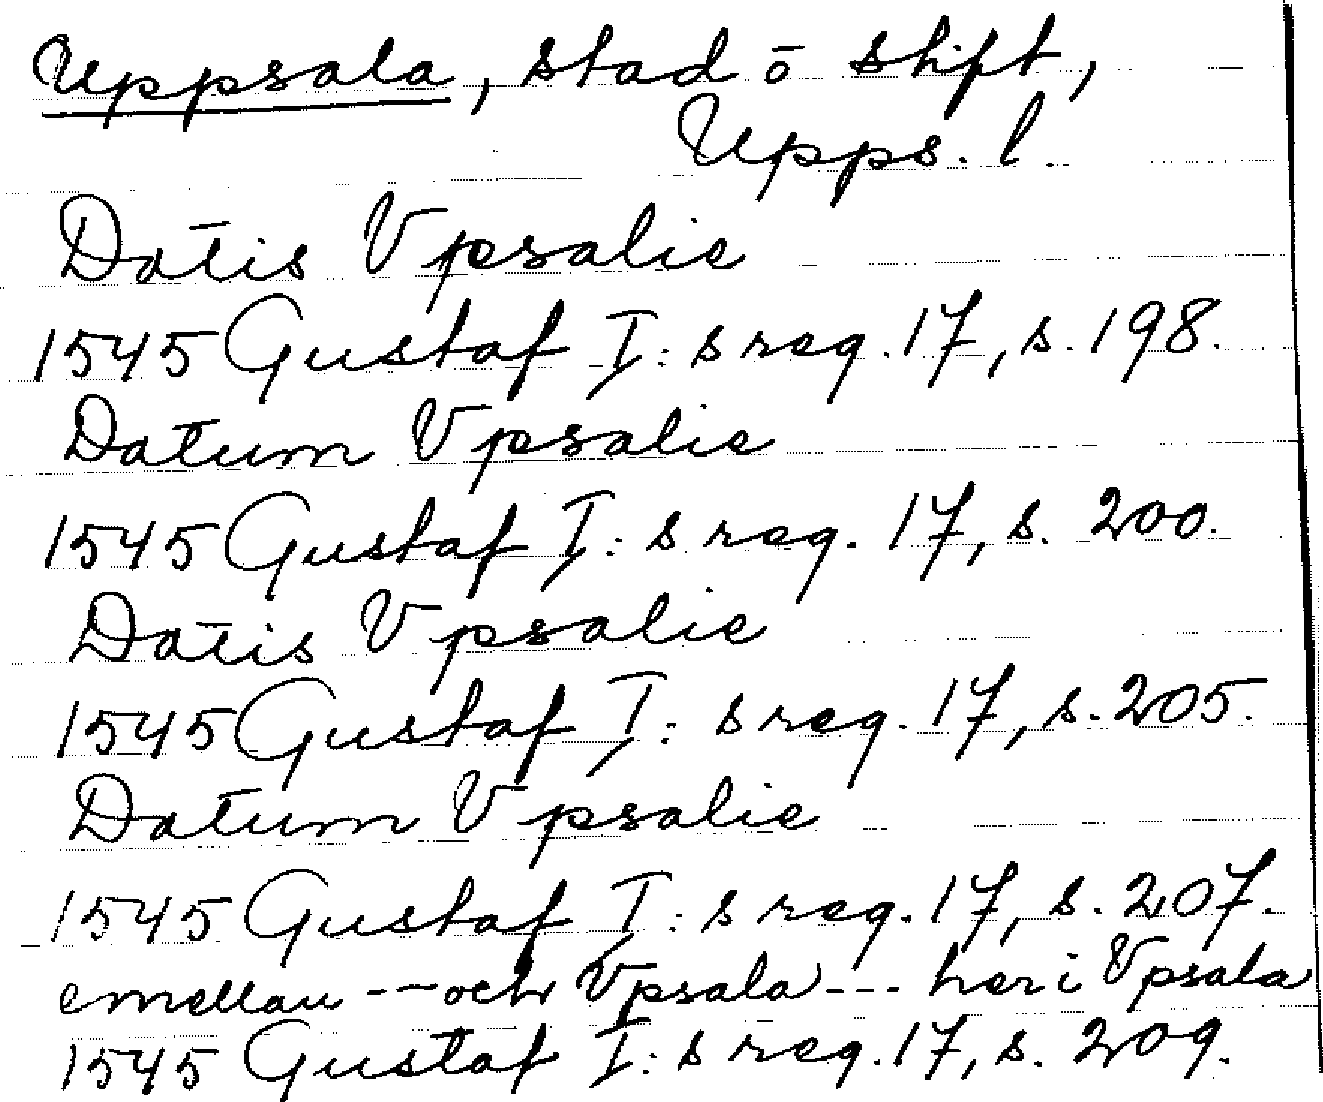 Uppsala, stad o stift,
Upps. l.
Datis Vpsalie
1545 Gustaf I: s reg. 17, s. 198.
Datum Vpsalie
1545 Gustaf I: s reg. 17, s. 200.
Datis Vpsalie
1545 Gustaf I: s reg. 17, s. 205.
Datum Vpsalie
1545 Gustaf I: s reg. 17, s. 207.
emellan --- och Vpsala --- her i Vpsala
1545 Gustaf I: s reg. 17, s. 209.